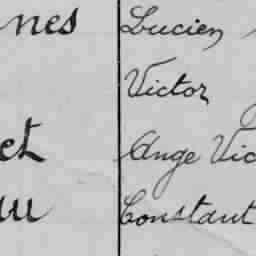 nes Lucien
Victor
et Ange Vic
u Constant